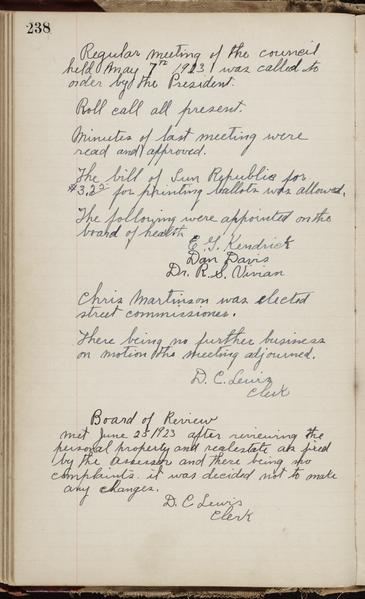 238
Regular meeting of the council
held May 7th 1923 was called to
order by the President.
Roll call all present.
Minutes of last meeting were
read and approved.
The bill of Sun Republic for
$3.22 for printing ballots was allowed.
The following were appointed on the
board of health
E. G. Kendrick
Dan Davis
Dr. R. S. Vivian
Chris Martinson was elected
street commissioner.
There being no further business
on motion the meeting adjourned.
D. C. Lewis
Clerk
Board of Review
met June 25 1923 after reviewing the
personal property and realestate as fixed
by the assessor and there being no
complaints. it was decided not to make
any changes.
D. C Lewis
Clerk